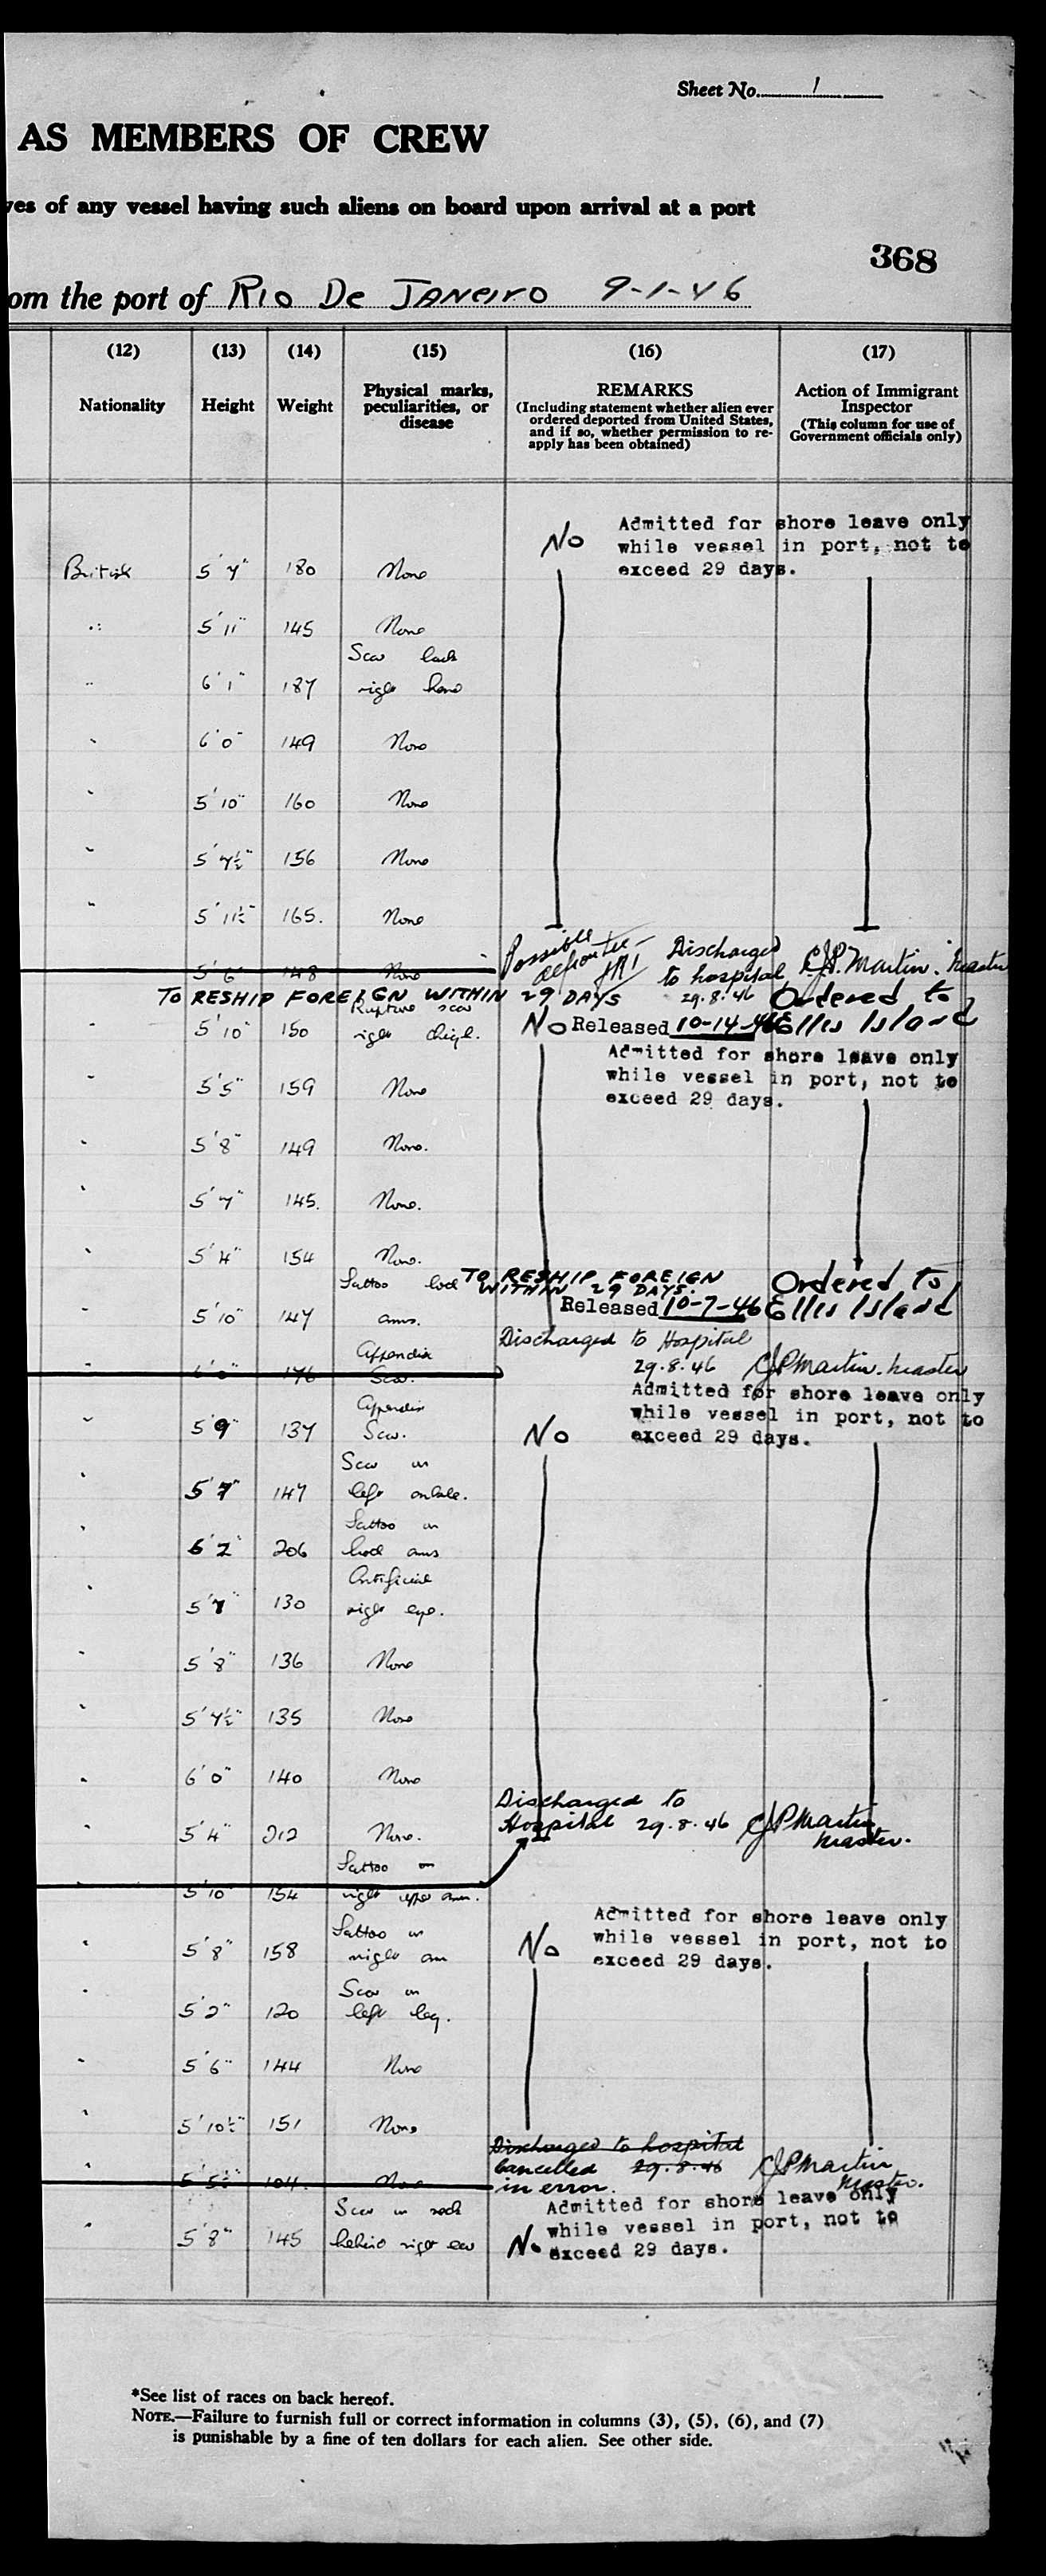 Sheet No. 1
AS MEMBERS OF CREW
ves of any vessel having such aliens on board upon arrival at a port
368
om the port of RIO DE JANEIRO 9-1-46
(12) (13) (14) (15) (16) (17)
Nationality Height Weight Physical marks, peculiarities, or disease REMARKS (Including statement whether alien ever ordered deported from United States, and if so, whether permission to re-apply has been obtained) Action of Immigrant Inspector (This column for use of Government officials only)
No Admitted for shore leave only
while vessel in port, not to
exceed 29 days.
British 5'7" 180 None
" 5'11" 145 None
Scar back
" 6'1" 187 right hand
" 6'0" 149 None
" 5'10" 160 None
" 5'7½" 156 None
" 5'11½" 165. None
Possible Discharged
5'6" 148 None to hospital C.J.P. Martin. Master
29.8.46 Ordered to
TO RESHIP FOREIGN WITHIN 29 DAYS
Rupture scar
" 5'10" 150 right thigh. No Released 10-14-46 Ellis Island
Admitted for shore leave only
while vessel in port, not to
exceed 29 days.
" 5'5" 159 None
" 5'8" 149 None.
" 5'7" 145. None.
" 5'4" 154 None.
Tattoo both TO RESHIP FOREIGN Ordered to
WITHIN 29 DAYS.
" 5'10" 147 arms. Released 10-7-46 Ellis Island
Discharged to Hospital
Appendix 29.8.46 CJP Martin. Master
6'0" 176 Scar.
Admitted for shore leave only
while vessel in port, not to
exceed 29 days.
Appendix
" 5'9" 137 Scar. No
Scar on
" 5'7" 147 left ankle.
Tattoo on
" 6'2" 206 both arms
Artificial
" 5'7" 130 right eye.
" 5'8" 136 None
" 5'7½" 135 None
" 6'0" 140 None
Discharged to
Hospital 29.8.46 CJP Martin
Master.
5'4" 212 None.
Tattoo on
5'10" 154 right upper arm.
Admitted for shore leave only
while vessel in port, not to
exceed 29 days.
Tattoo on
" 5'8" 158 right arm No
Scar on
" 5'2" 120 left leg.
" 5'6" 144 None
" 5'10½" 151 None
Discharged to hospital
Cancelled 29.8.46 CJP Martin
in error. Master.
" 5'5½" 104. None
Admitted for shore leave only
while vessel in port, not to
exceed 29 days.
Scar on neck
" 5'8" 145 behind right ear No
*See list of races on back hereof.
NOTE.—Failure to furnish full or correct information in columns (3), (5), (6), and (7)
is punishable by a fine of ten dollars for each alien. See other side.